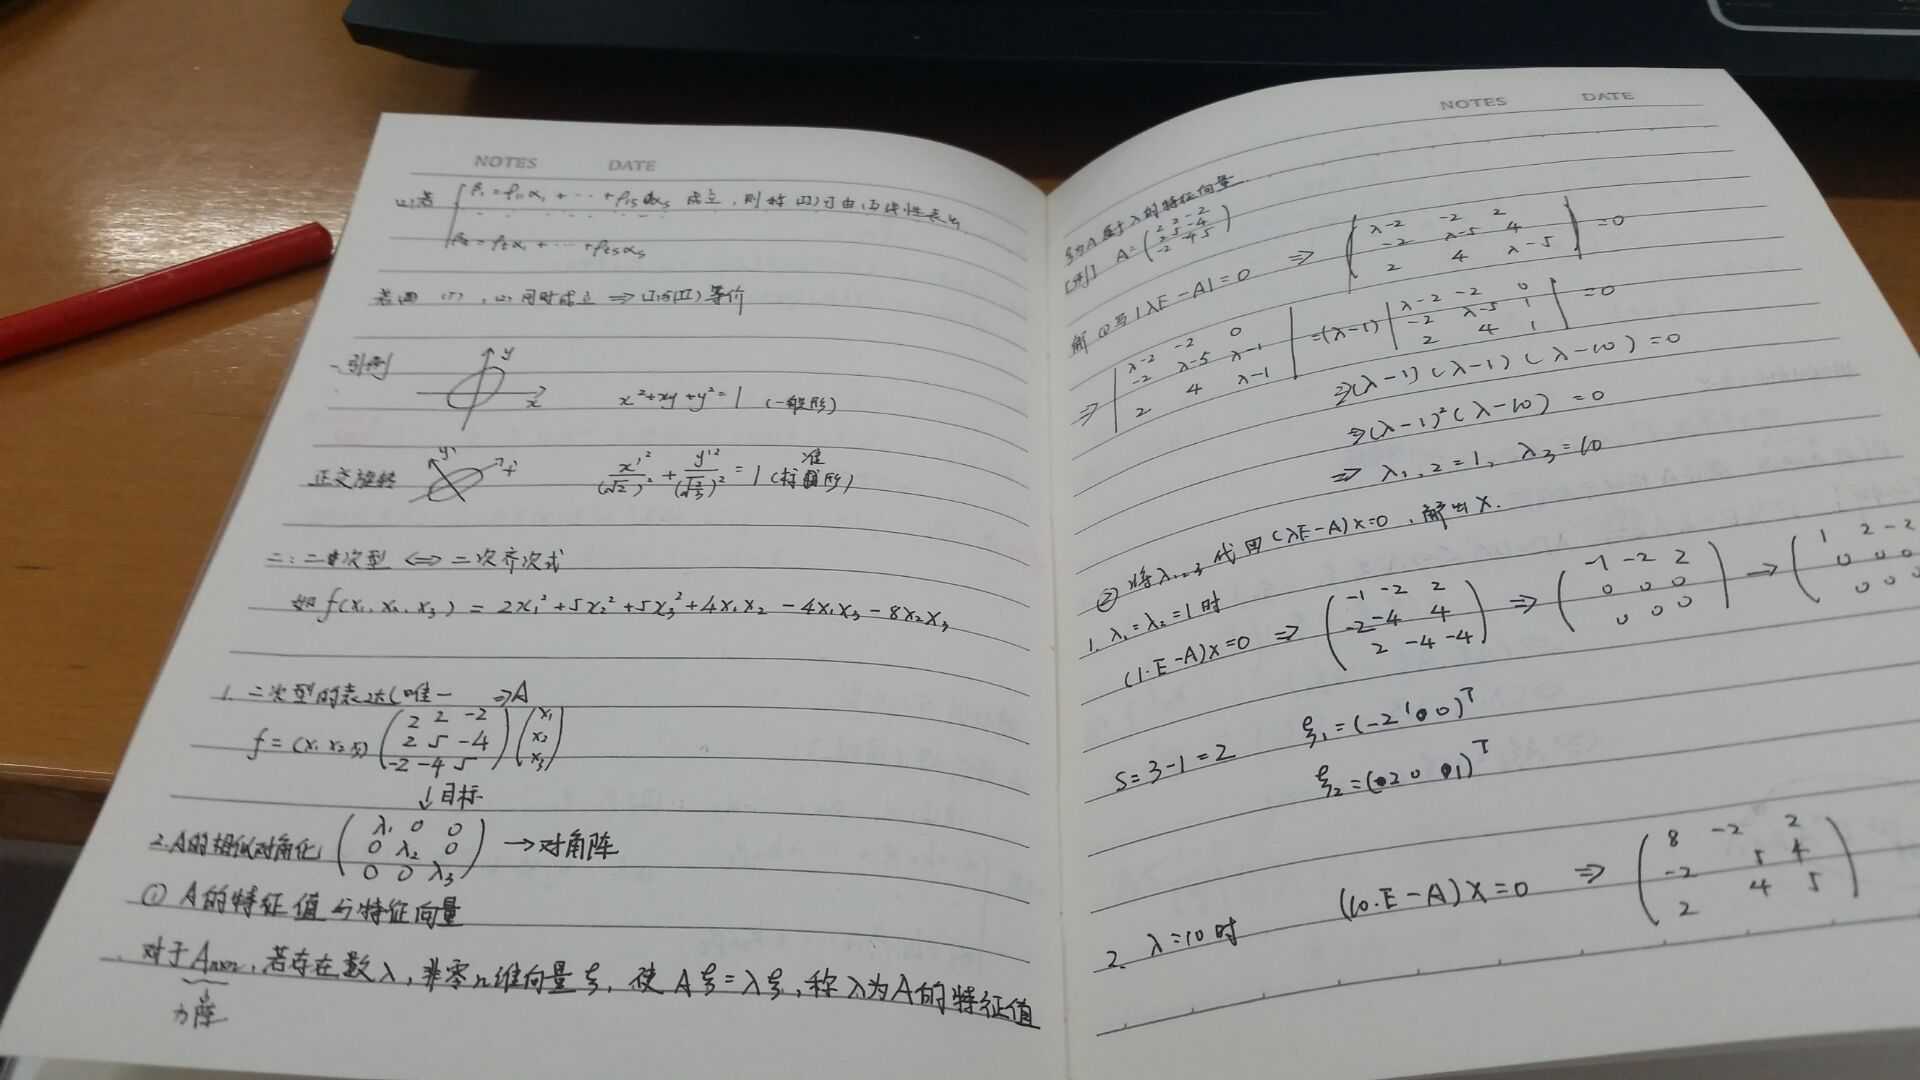 NOTES DATE
(2) 若 β₁=ρ₁₁α₁+⋯+ρ₁sαs 成立，则称(II)可由(I)线性表出
βt=ρtα₁+⋯+ρtsαs
若 (1), (2) 同时成立 ⇒ (I)与(II) 等价
一 引例 y x x²+xy+y²=1 (一般形)
正交旋转 y' x' x'²/(√2)²+y'²/(√(2/3))²=1 (标准形)
二: 二次型 ⟺ 二次齐次式
如 f(x₁, x₂, x₃) = 2x₁²+5x₂²+5x₃²+4x₁x₂-4x₁x₃-8x₂x₃
1. 二次型的表达(唯一 ⇒A
f=(x₁ x₂ x₃) (2 2 -2
2 5 -4
-2 -4 5) (x₁
x₂
x₃)
↓目标
2. A的相似对角化 (λ₁ 0 0
0 λ₂ 0
0 0 λ₃) →对角阵
① A的特征值与特征向量
对于Aₙₓₙ, 若存在数λ, 非零n维向量ξ, 使Aξ=λξ, 称λ为A的特征值
方阵
NOTES DATE
ξ为A属于λ的特征向量.
[例] A=(2 2 -2
2 5 -4
-2 -4 5)
解 ①写|λE-A|=0 ⇒ (λ-2 -2 2
-2 λ-5 4
2 4 λ-5) =0
⇒ |λ-2 -2 0
-2 λ-5 λ-1
2 4 λ-1| =(λ-1) |λ-2 -2 0
-2 λ-5 1
2 4 1| =0
⇒(λ-1)(λ-1)(λ-10)=0
⇒(λ-1)²(λ-10)=0
⇒ λ₁,₂=1, λ₃=10
② 将λ₁,₂,₃代回(λE-A)x=0, 解出X.
1. λ₁=λ₂=1时
(1·E-A)x=0 ⇒ (-1 -2 2
-2 -4 4
2 -4 -4) ⇒ (-1 -2 2
0 0 0
0 0 0) → (1 2 -2
0 0 0
0 0 0
s=3-1=2 ξ₁=(-2 1 0)ᵀ
ξ₂=(2 0 1)ᵀ
2. λ=10时 (10·E-A)X=0 ⇒ (8 -2 2
-2 5 4
2 4 5)